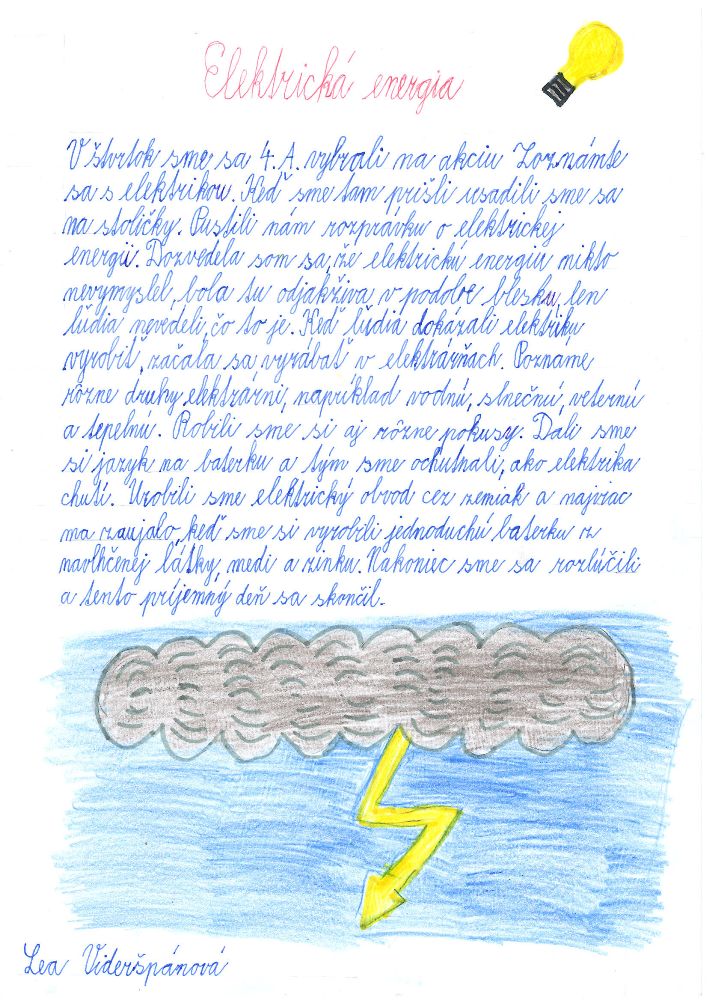 Elektrická energia
V štvrtok sme sa 4. A. vybrali na akciu Zoznámte
sa s elektrikou. Keď sme tam prišli usadili sme sa
na stoličky. Pustili nám rozprávku o elektrickej
energii. Dozvedela som sa, že elektrickú energiu nikto
nevymyslel, bola tu odjakživa v podobe blesku, len
ľudia nevedeli, čo to je. Keď ľudia dokázali elektriku
vyrobiť, začala sa vyrábať v elektrárňach. Pozname
rôzne druhy elektrární, napríklad vodnú, slnečnú, veternú
a tepelnú. Robili sme si aj rôzne pokusy. Dali sme
si jazyk na baterku a tým sme ochutnali, ako elektrika
chutí. Urobili sme elektrický obvod cez zemiak a najviac
ma zaujalo, keď sme si vyrobili jednoduchú baterku z
navlhčenej látky, medi a zinku. Nakoniec sme sa rozlúčili
a tento príjemný deň sa skončil.
Lea Videršpánová